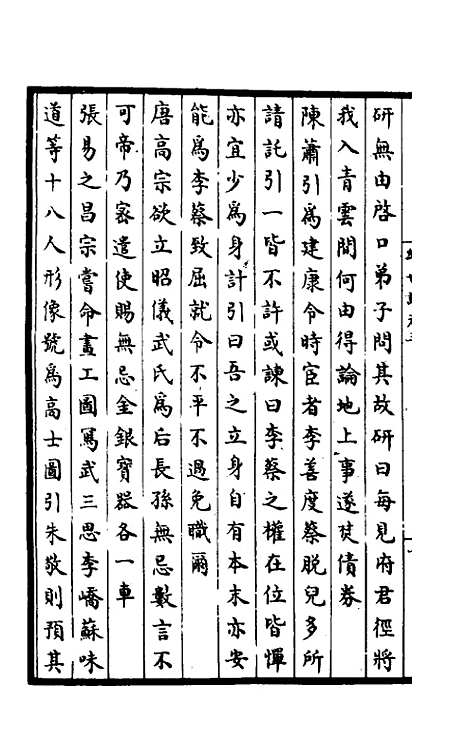 研無由啓口弟子問其故研曰每見府君徑將
我入青雲間何由得論地上事遂焚債券
陳蕭引爲建康令時宦者李善度蔡脫兒多所
請託引一皆不許或諫曰李蔡之權在位皆憚
亦宜少爲身計引曰吾之立身自有本末亦安
能爲李蔡致屈就令不平不過免職爾
唐高宗欲立昭儀武氏爲后長孫無忌數言不
可帝乃密遣使賜無忌金銀寶器各一車
張易之昌宗嘗命畫工圖寫武三思李嶠蘇味
道等十八人形像號爲高士圖引朱敬則預其